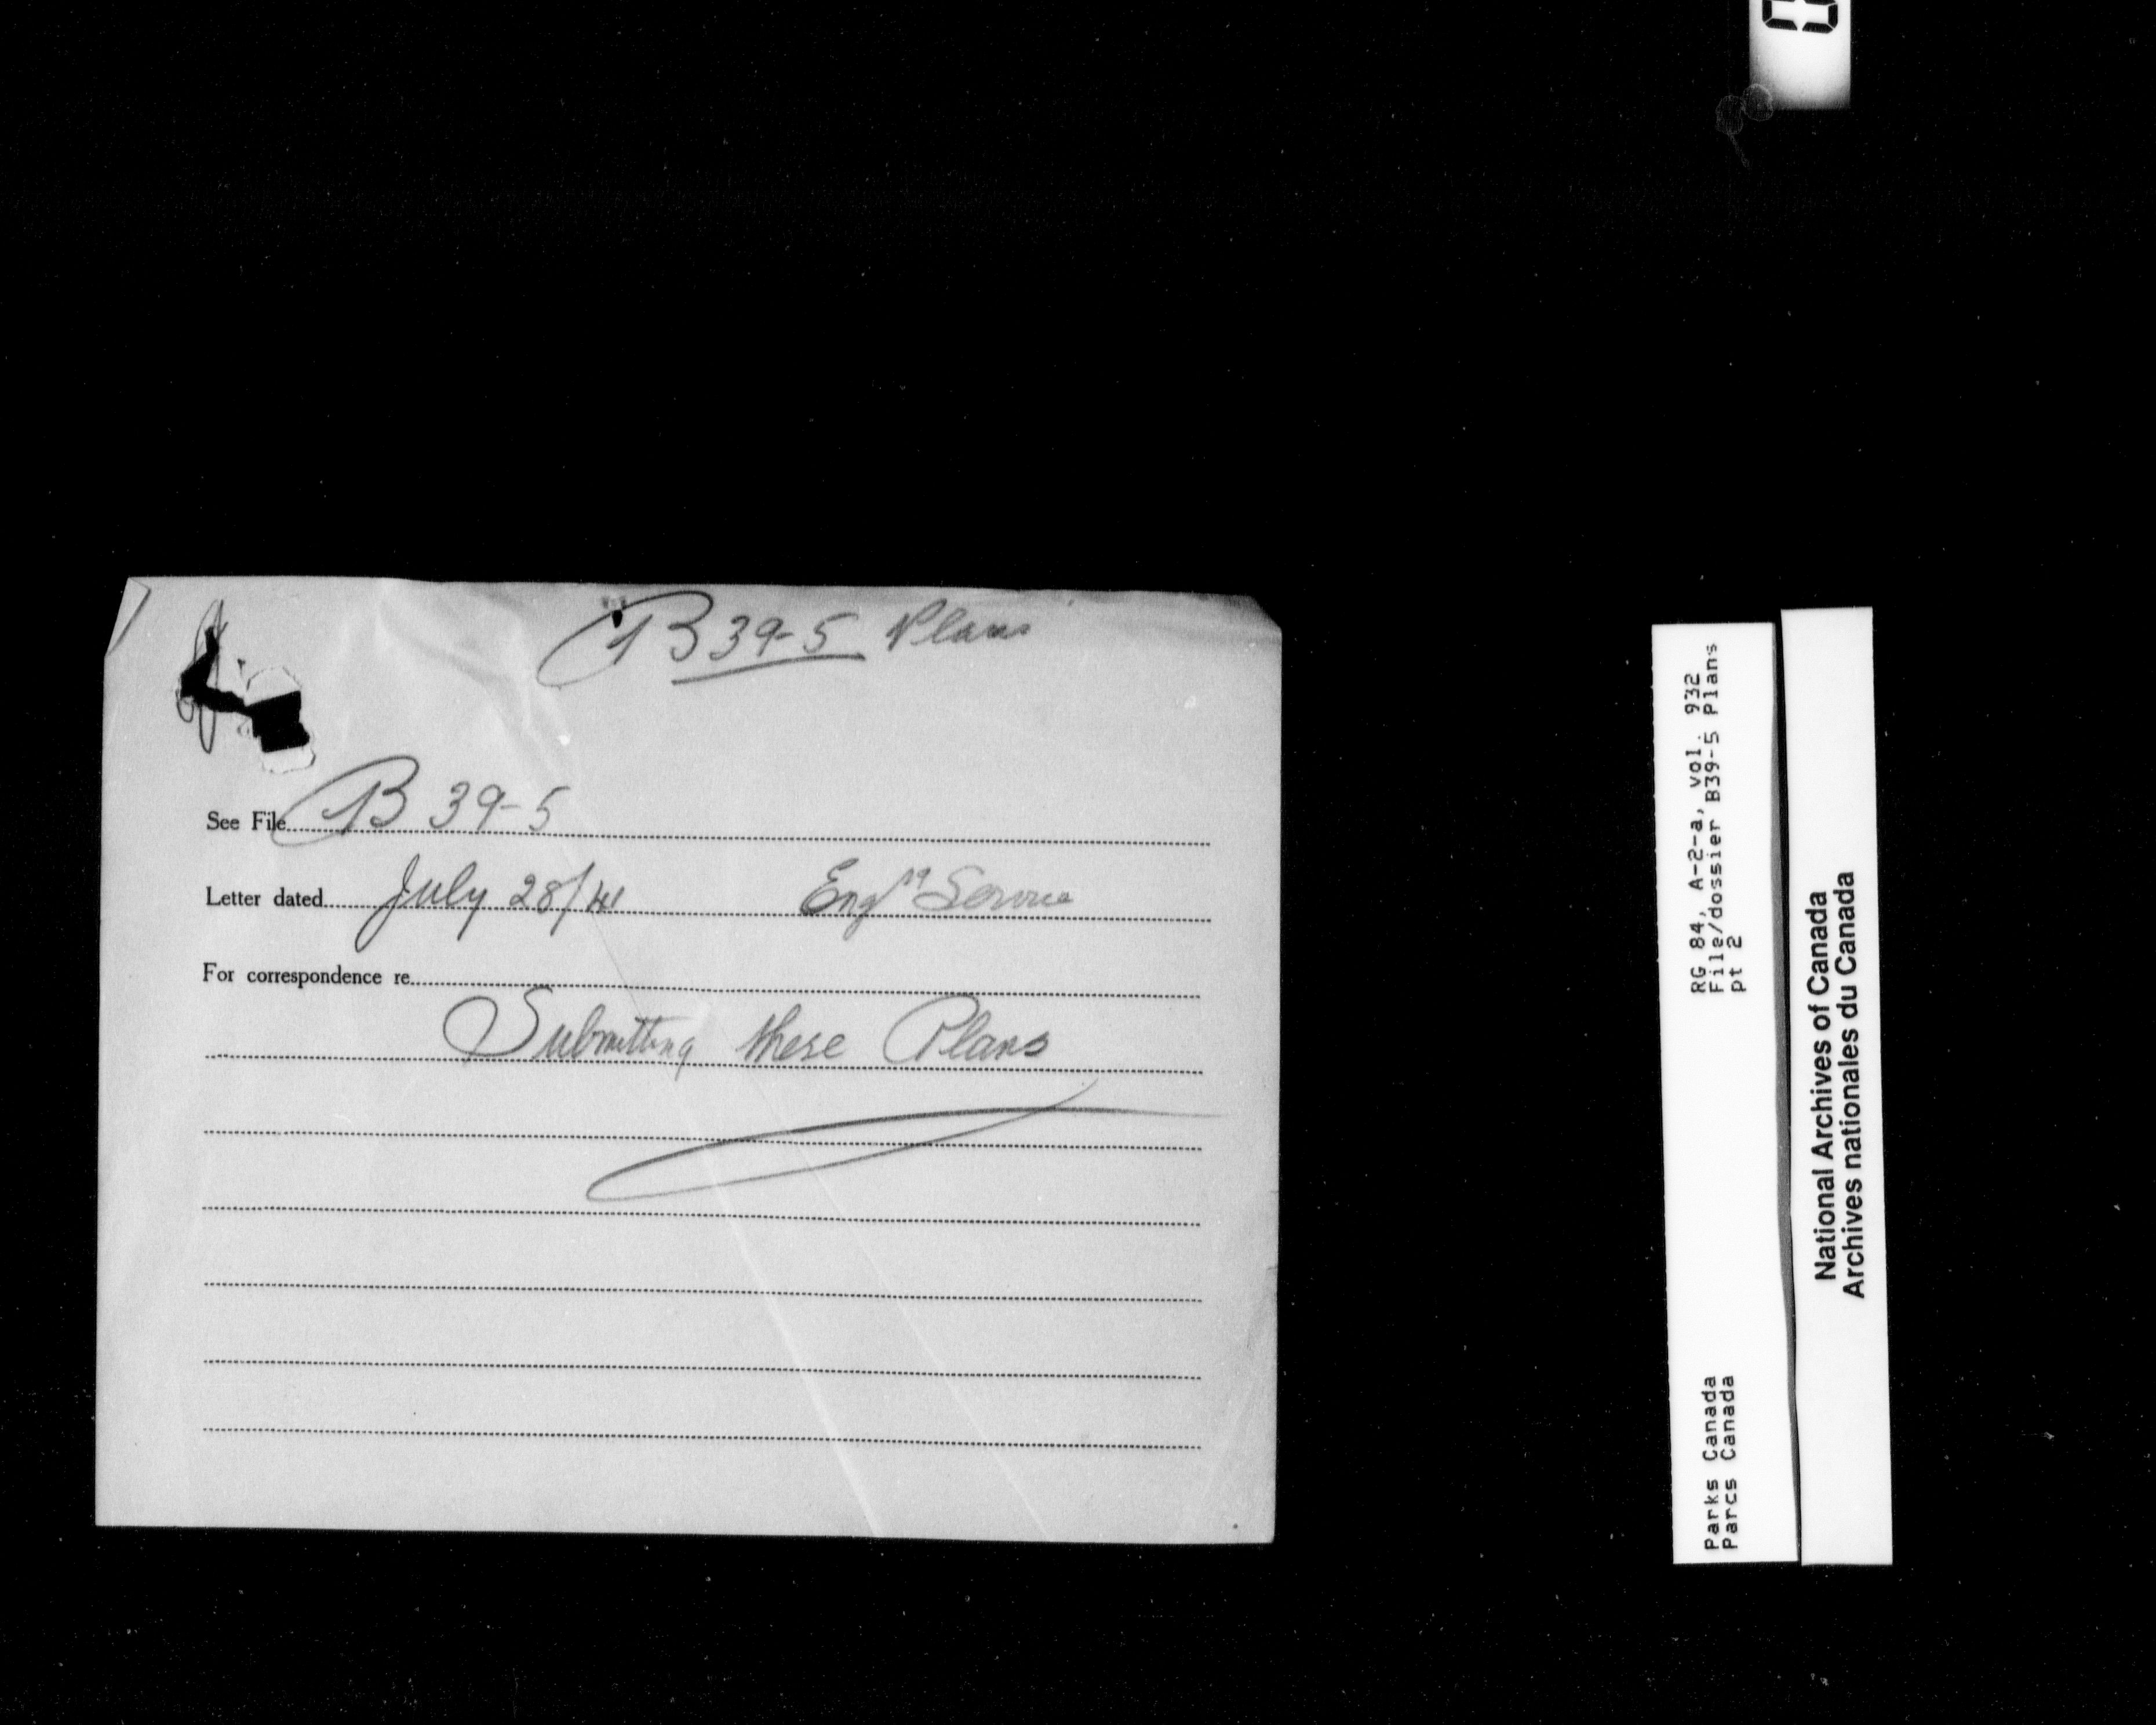 B 39-5 Plans
See File B 39-5
Letter dated July 28/41 Eng'g Service
For correspondence re
Submitting these Plans
RG 84, A-2-a, vol. 932
File/dossier B39-5 Plans
pt 2
Parks Canada
Parcs Canada
National Archives of Canada
Archives nationales du Canada